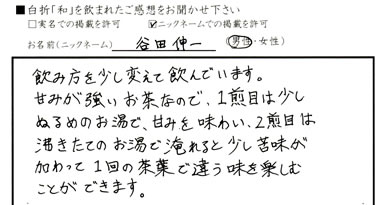 ■白折「和」を飲まれたご感想をお聞かせ下さい
□実名での掲載を許可 ☑ニックネームでの掲載を許可
お名前(ニックネーム) 谷田伸一 (男性・女性)
飲み方を少し変えて飲んでいます。
甘みが強いお茶なので、1煎目は少し
ぬるめのお湯で、甘みを味わい、2煎目は
沸きたてのお湯で淹れると少し苦味が
加わって1回の茶葉で違う味を楽しむ
ことができます。